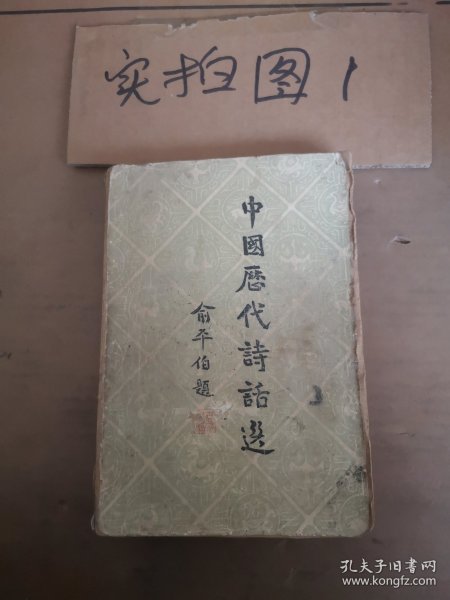 实拍图1
中國歷代詩話選
俞平伯題
孔夫子旧书网
www.kongfz.com